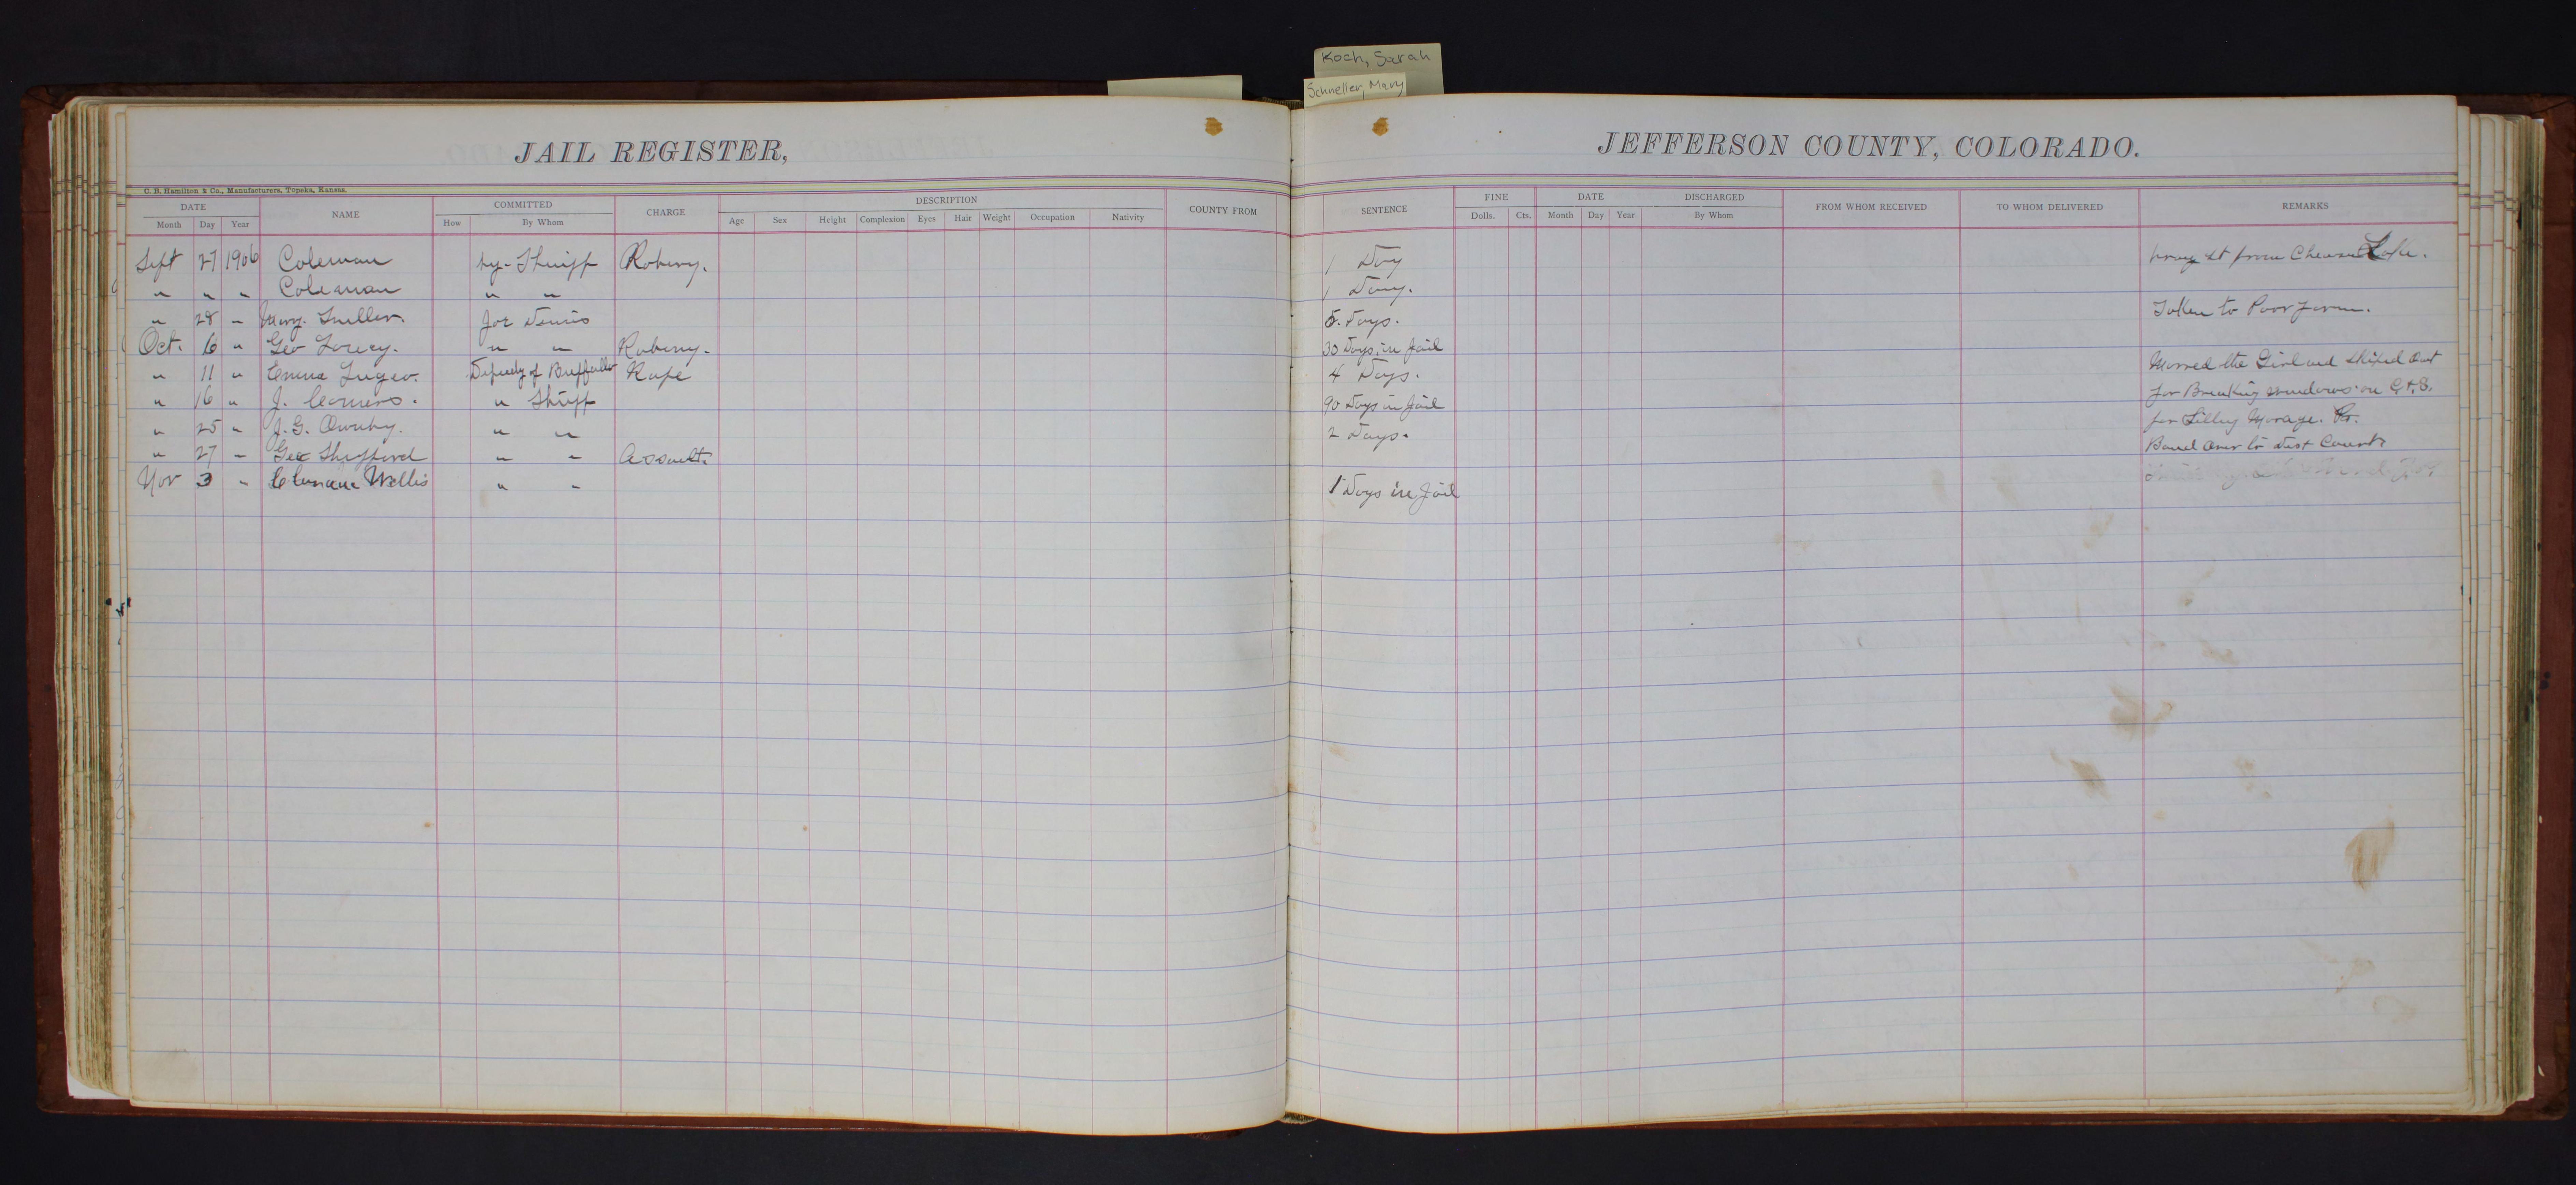 Koch, Sarah
Schneller, Mary
JAIL REGISTER,
JEFFERSON COUNTY, COLORADO.
C. B. Hamilton & Co., Manufacturers, Topeka, Kansas.
DATE NAME COMMITTED CHARGE DESCRIPTION COUNTY FROM SENTENCE FINE DATE DISCHARGED FROM WHOM RECEIVED TO WHOM DELIVERED REMARKS
Month Day Year How By Whom Age Sex Height Complexion Eyes Hair Weight Occupation Nativity Dolls. Cts. Month Day Year By Whom
Sept 27 1906 Coleman by Sheriff Robery. 1 Day from
" " " Coleman " " 1 Day.
" 28 " Mary. Joe Dennis 5. Days. Taken to Poor farm.
Oct. 6 " Geo " " Robery. 30 Days in Jail
" 11 " Deputy of Buffallo Rape 4 Days. Marred the Girl and Skiped out
" 16 " J. Conners. " Sheriff 90 Days in Jail for Breaking windows on C.&S.
" 25 " J. G. " " 2 Days. for
" 27 " Geo Shepperd " " Assault. Bound over to Dist Court
Nov 3 " Willis " " 1 Days in Jail